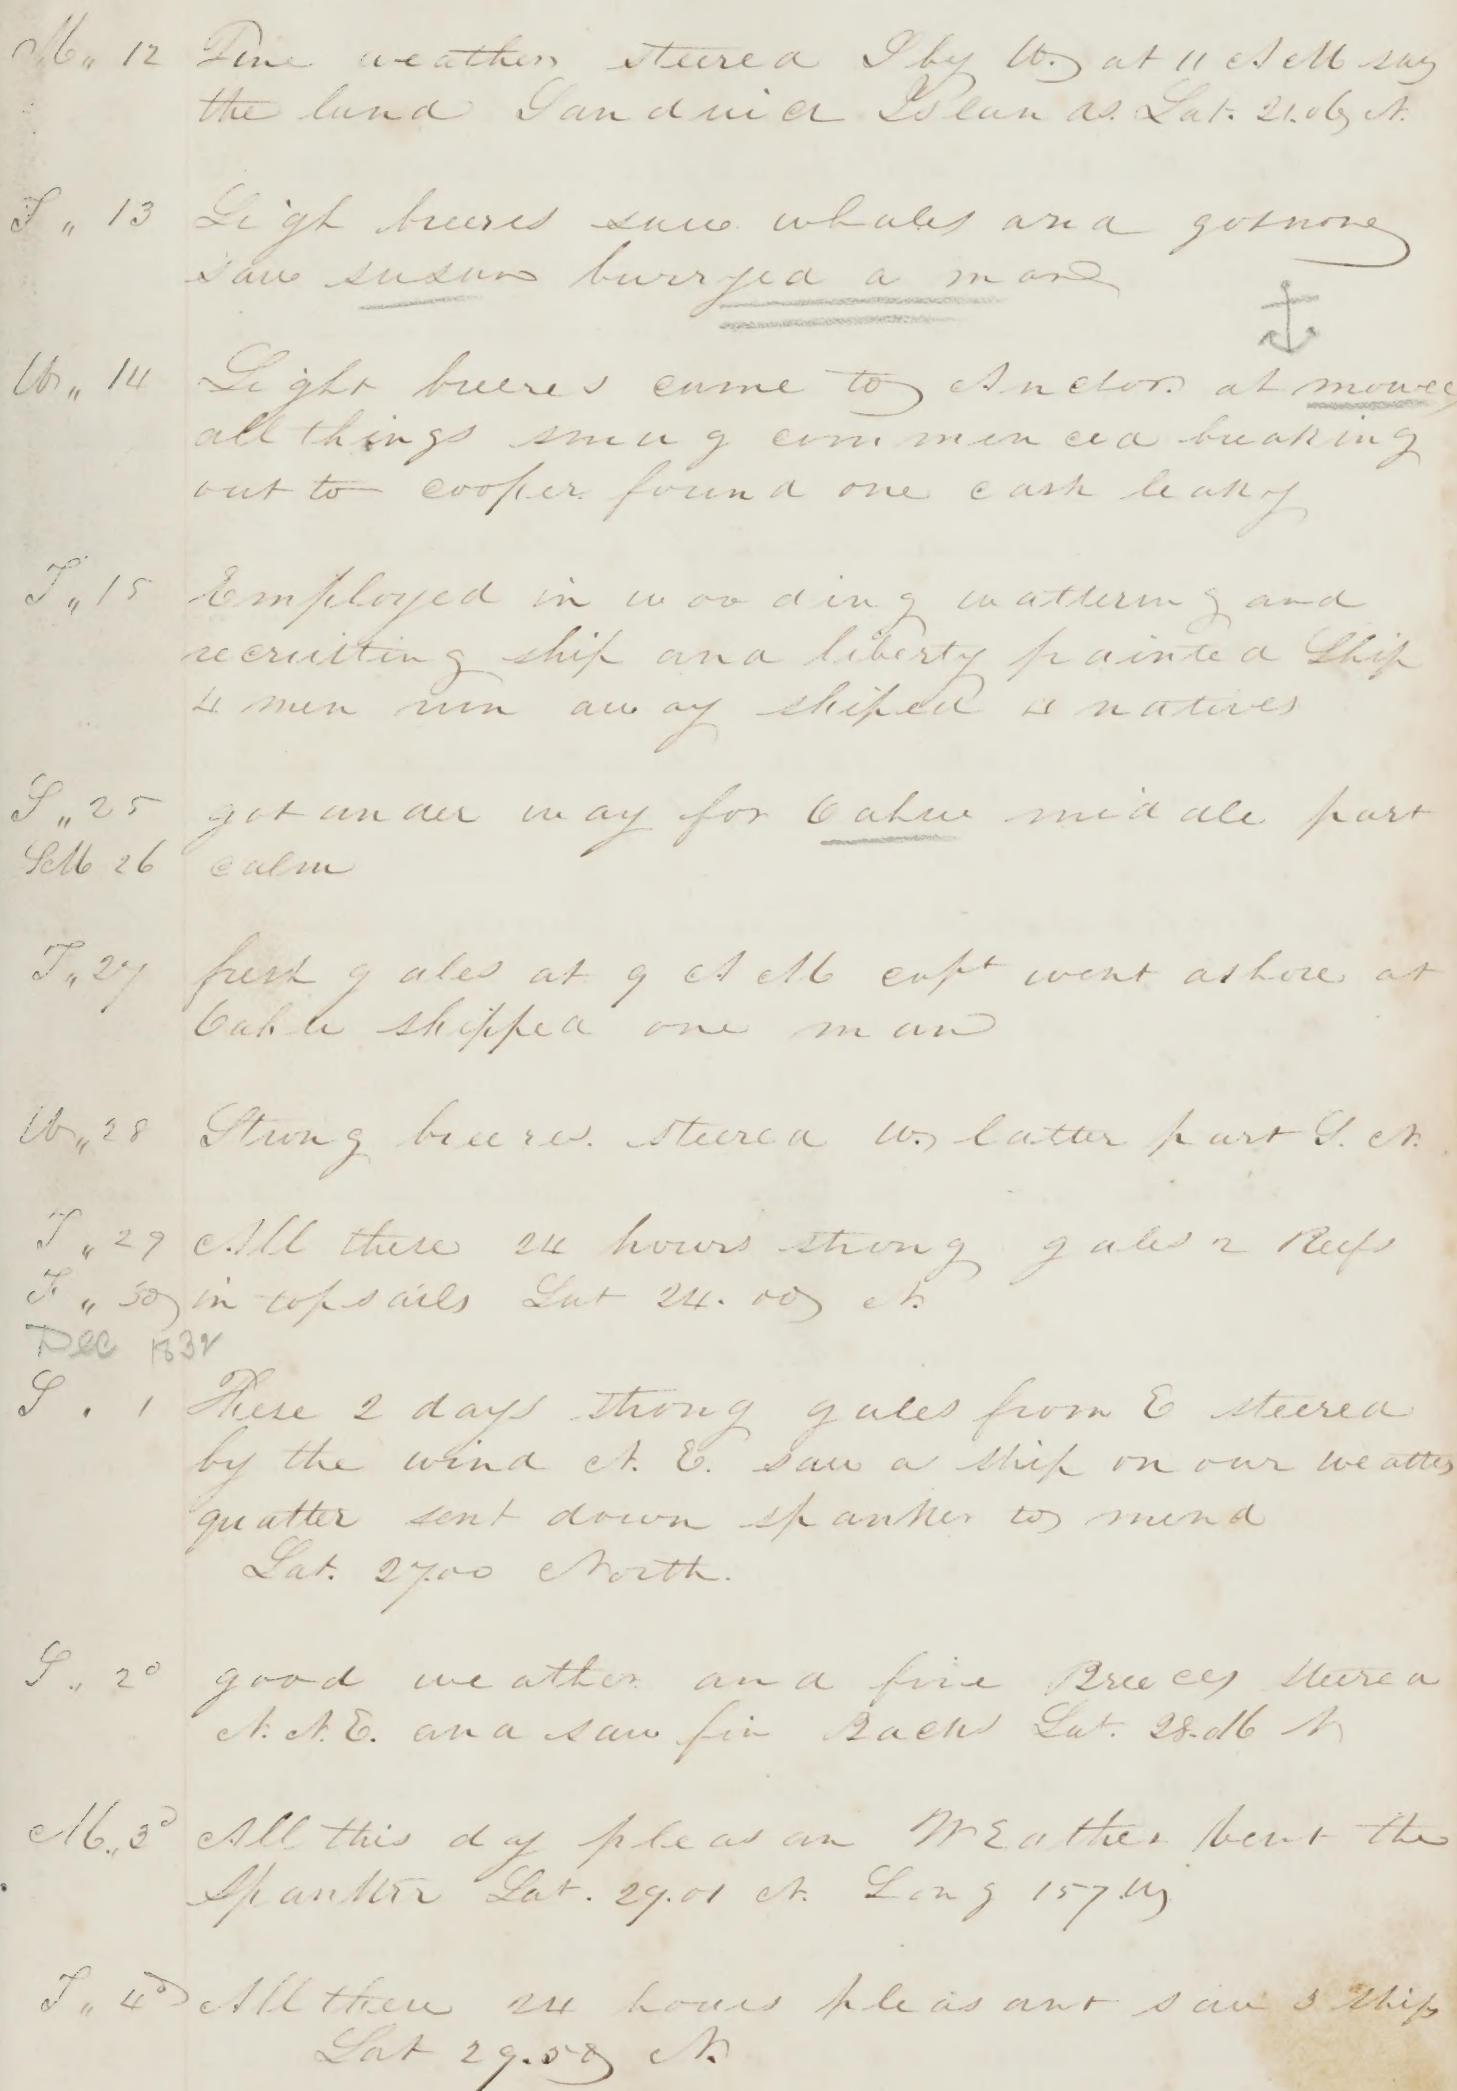 M " 12 Fine weather steered S by W. at 11 A M saw
the land Sandwich Islands. Lat. 21.06 N.
T " 13 Ligh breeses saw whales and got none
saw susan burryed a man
W " 14 Light breeses came to Anchor at mowee
all things snug commenced breaking
out to cooper found one cask leaky
T " 15 Employed in wooding wattering and
recruitting ship and liberty painted Ship
4 men run away shiped 4 natives
S " 25 got under way for Oahue middle part
S M 26 calm
T " 27 fresh gales at 9 A M capt went ashore at
Oahu shipped one man
W " 28 Strong breeses. steered W. latter part S. N.
T " 29 All these 24 hours strong gales 2 Reefs
F " 30 in topsails Lat 24.00 N.
Dec 1832
S . 1 These 2 days strong gales from E steered
by the wind N. E. saw a ship on our weather
quatter sent down spanker to mend
Lat. 27.00 North.
S " 2d good weather and fine Breeces steered
N. N. E. and saw fin Backs Lat. 28.06 N
M " 3d All this day pleasan WEather bent the
Spanker Lat. 29.01 N. Long 157.W
T " 4d All these 24 hours pleasant saw 3 ship
Lat 29.50 N.